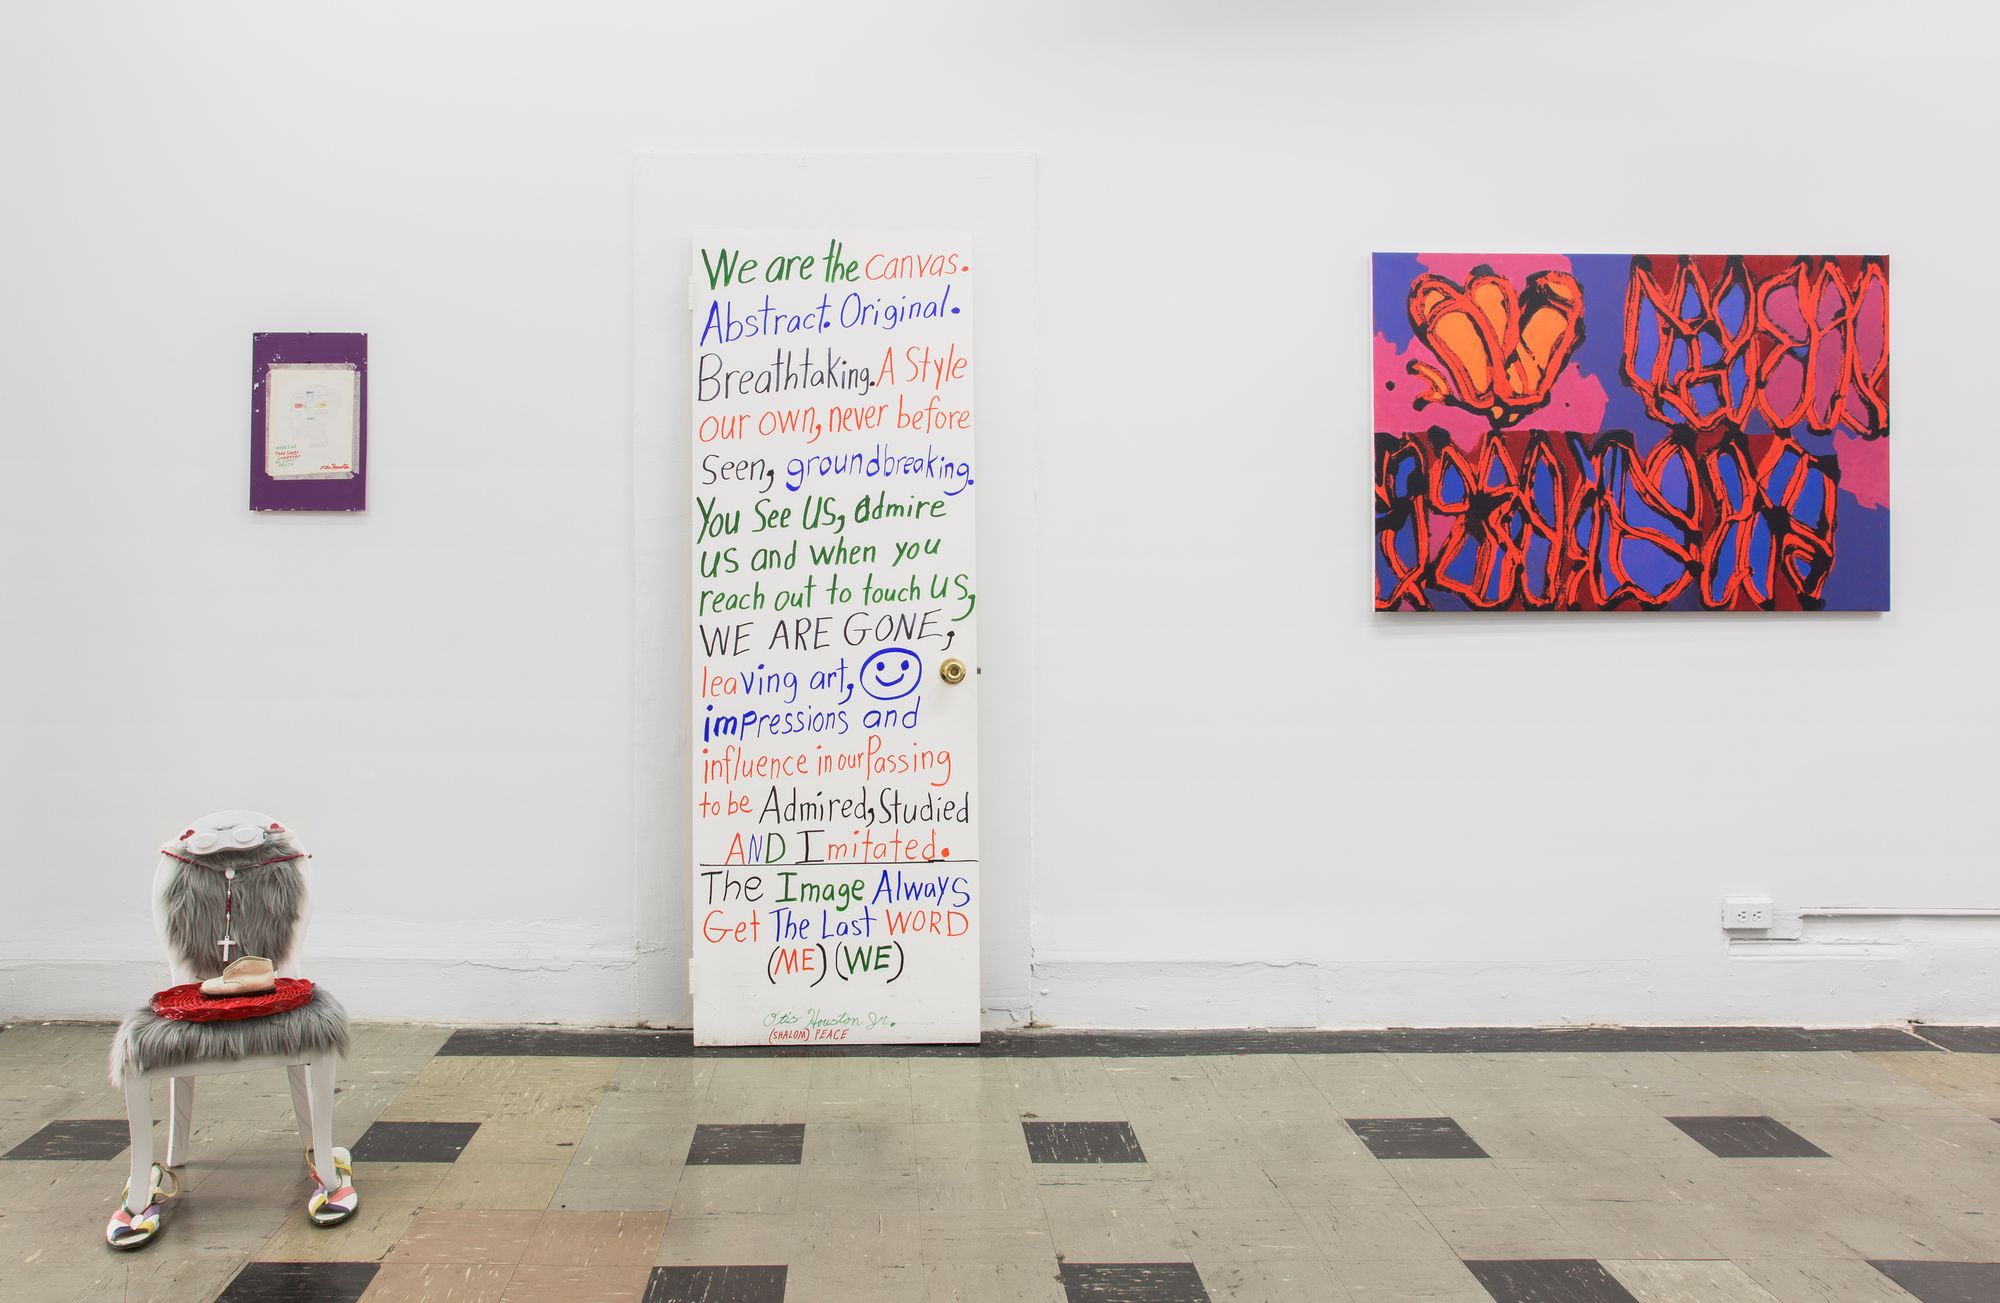 We are the canvas.
Abstract. Original.
Breathtaking. A Style
our own, never before
Seen, groundbreaking.
You See US, admire
US and when you
reach out to touch US,
WE ARE GONE,
leaving art,
impressions and
influence in our Passing
to be Admired, Studied
AND Imitated.
The Image Always
Get The Last WORD
(ME) (WE)
Otis Houston Jr.
(SHALOM) PEACE
Otis Houston